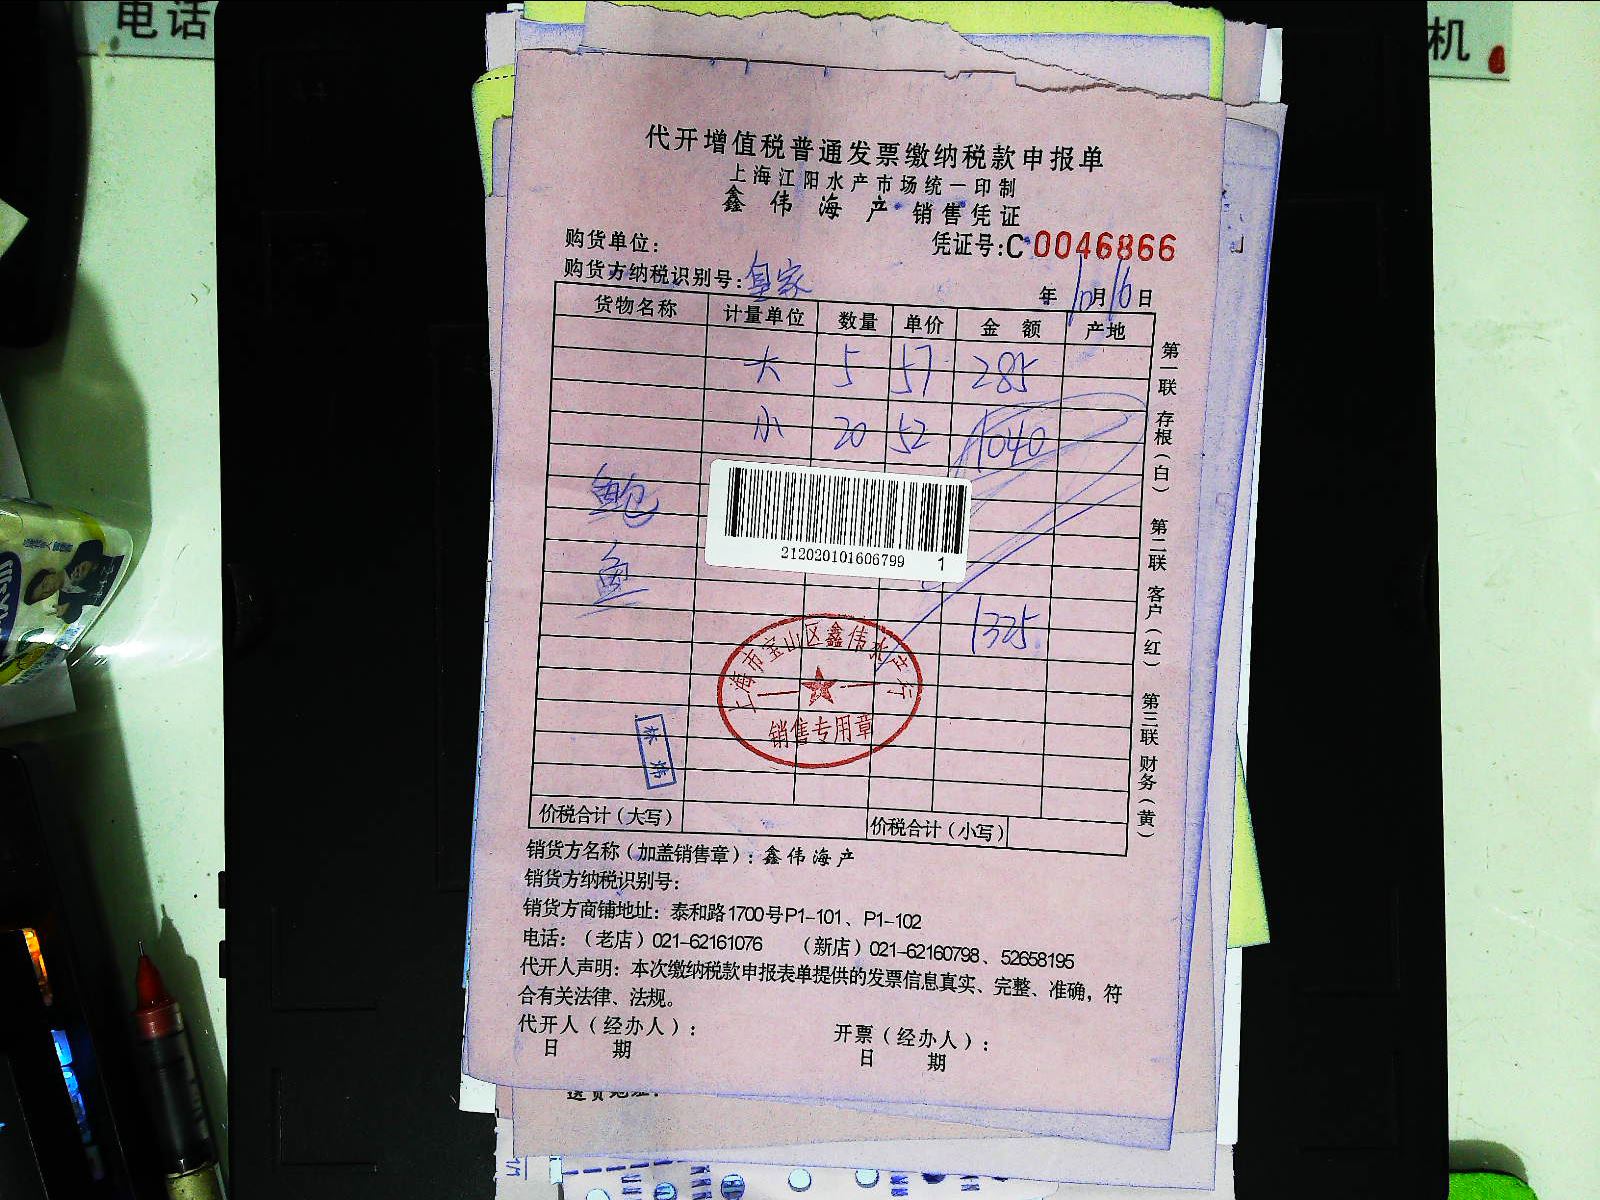 电话
机
代开增值税普通发票缴纳税款申报单
上海江阳水产市场统一印制
鑫伟海产销售凭证
购货单位： 凭证号:C 0046866
购货方纳税识别号：皇家
年10月16日
货物名称 计量单位 数量 单价 金额 产地
大 5 57 285
小 20 52 1040
鲍
鱼
212020101606799 1
1325
上海市宝山区鑫伟水产行
销售专用章
价税合计（大写） 价税合计（小写）
第一联 存根（白） 第二联 客户（红） 第三联 财务（黄）
销货方名称（加盖销售章）：鑫伟海产
销货方纳税识别号：
销货方商铺地址：泰和路1700号P1-101、P1-102
电话：（老店）021-62161076 （新店）021-62160798、52658195
代开人声明：本次缴纳税款申报表单提供的发票信息真实、完整、准确，符
合有关法律、法规。
代开人（经办人）： 开票（经办人）：
日 期 日 期